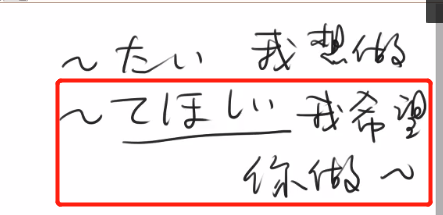 ～たい 我想做
～てほしい 我希望
你做～